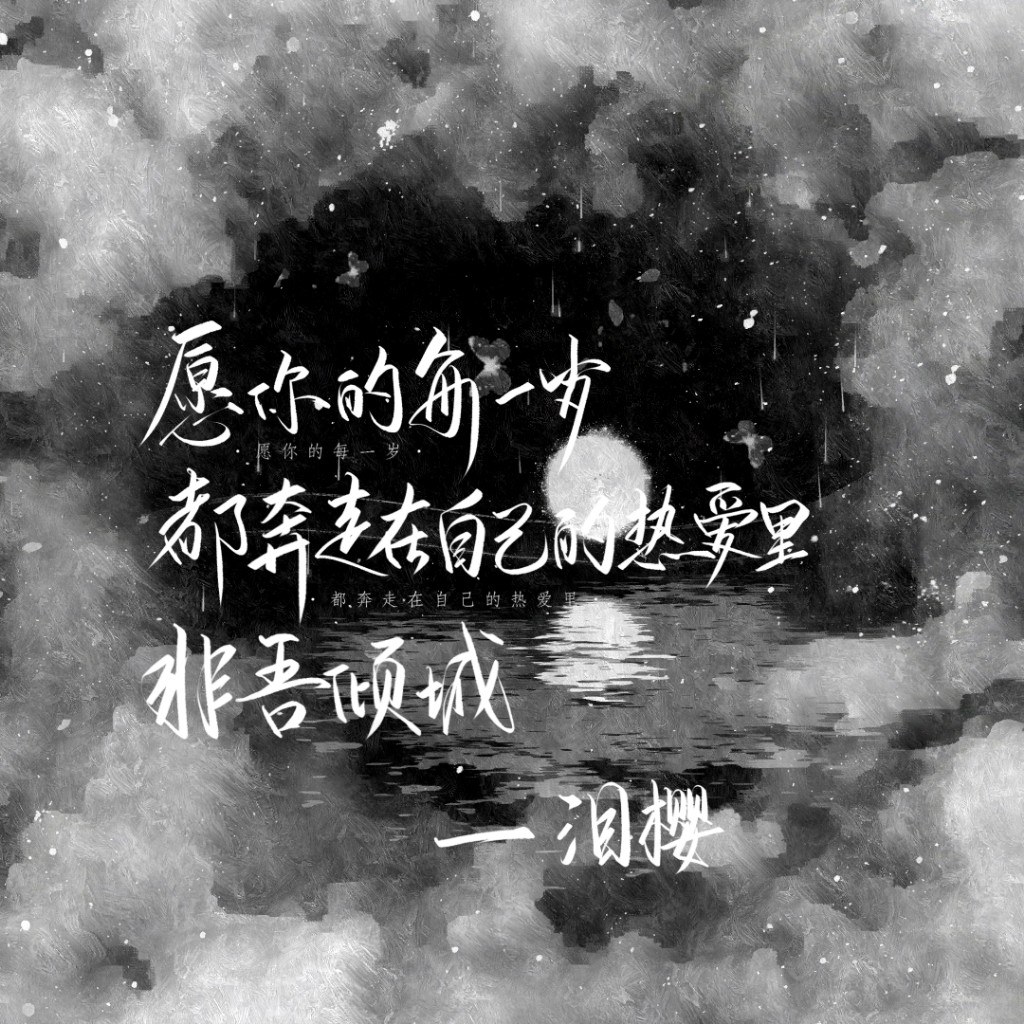 愿你的每一岁
愿你的每一岁
都奔走在自己的热爱里
都奔走在自己的热爱里
非吾倾城
一泪樱